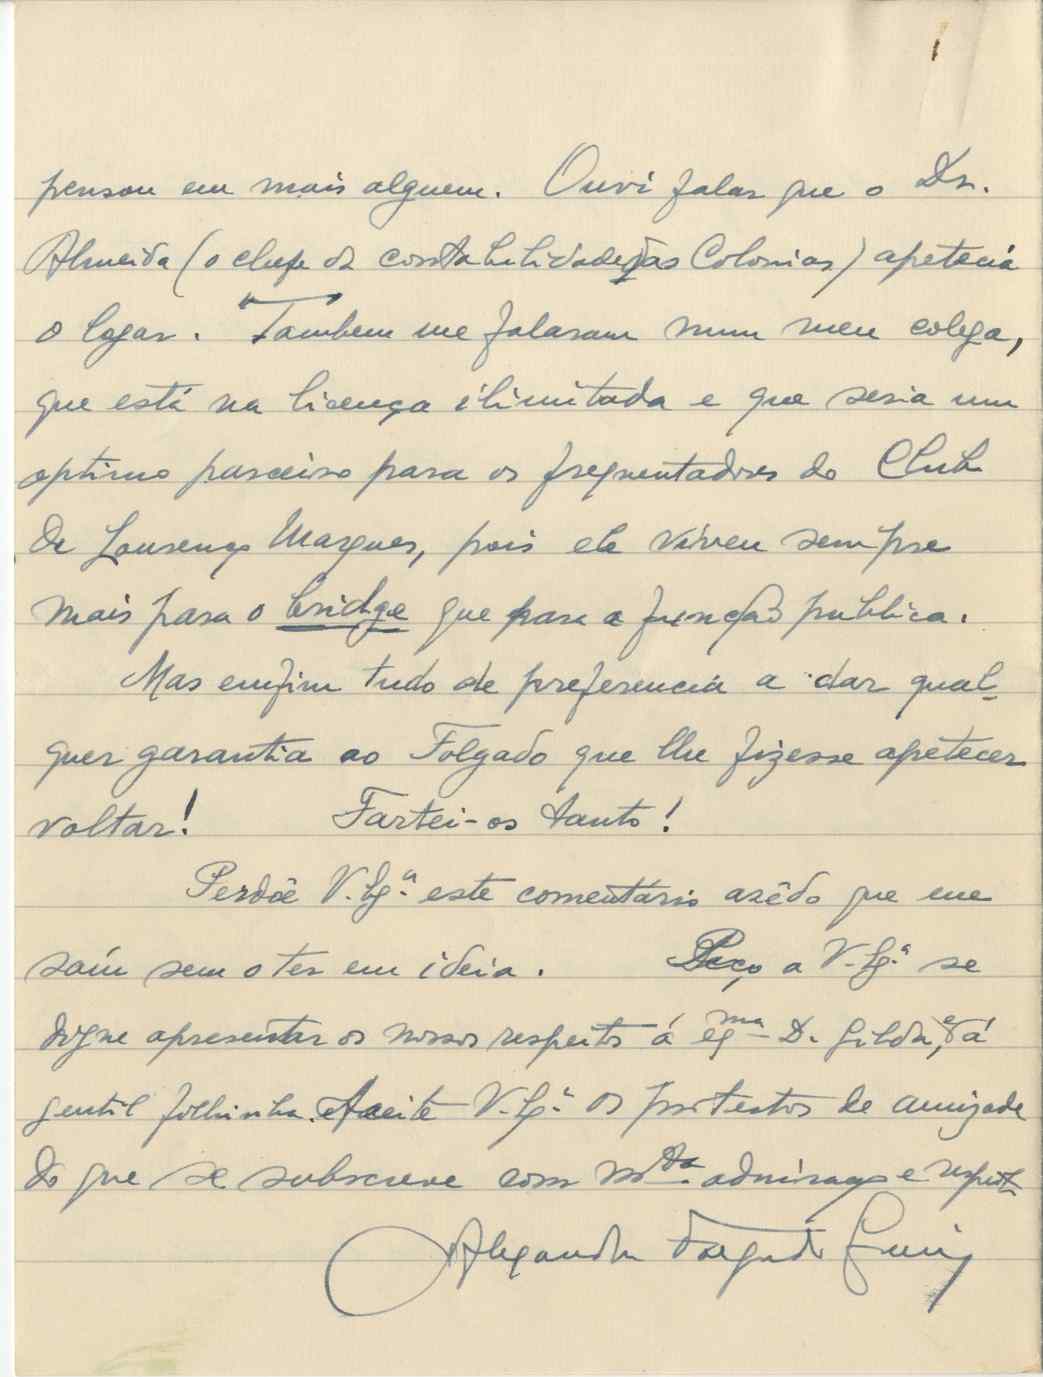 pensou em mais alguem. Ouvi falar que o Dr.
Almeida (o chefe da contabilidade das Colonias) apetecia
o logar. Tambem me falaram num meu colega,
que está na licença ilimitada e que seria um
optimo parceiro para os frequentadores do Club
de Lourenço Marques, pois ele viveu sempre
mais para o bridge que para a função publica.
Mas emfim tudo de preferencia a dar qual-
quer garantia ao Folgado que lhe fizesse apetecer
voltar! Fartei-os tanto!
Perdôe V. Exª. este comentário azêdo que me
saíu sem o ter em ideia. Peço a V. Exª. se
digne apresentar os nossos respeitos á exma D. Gilda, e á
gentil filhinha. Aceite V. Exª. os protestos de amizade
do que se subscreve com mta. admiração e respeito
Alexandre